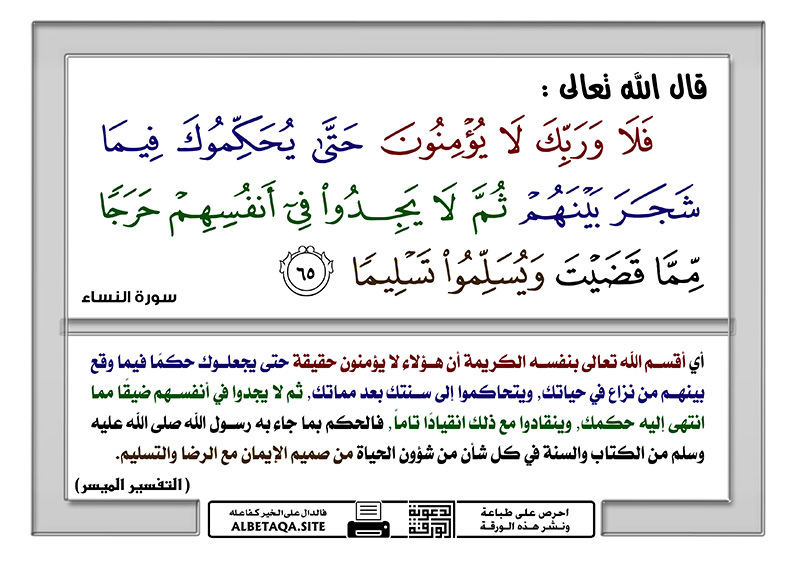 قال الله تعالى :
فَلَا وَرَبِّكَ لَا يُؤْمِنُونَ حَتَّىٰ يُحَكِّمُوكَ فِيمَا
شَجَرَ بَيْنَهُمْ ثُمَّ لَا يَجِدُوا۟ فِىٓ أَنفُسِهِمْ حَرَجًا
مِّمَّا قَضَيْتَ وَيُسَلِّمُوا۟ تَسْلِيمًا ٦٥
سورة النساء
أي أقسم الله تعالى بنفسه الكريمة أن هؤلاء لا يؤمنون حقيقة حتى يجعلوك حكمًا فيما وقع
بينهم من نزاع في حياتك, ويتحاكموا إلى سنتك بعد مماتك, ثم لا يجدوا في أنفسهم ضيقًا مما
انتهى إليه حكمك, وينقادوا مع ذلك انقيادًا تاماً, فالحكم بما جاء به رسول الله صلى الله عليه
وسلم من الكتاب والسنة في كل شأن من شؤون الحياة من صميم الإيمان مع الرضا والتسليم.
( التفسير الميسر)
احرص على طباعة
ونشر هذه الورقة
الدعوية
الورقة
فالدال على الخير كفاعله
ALBETAQA.SITE